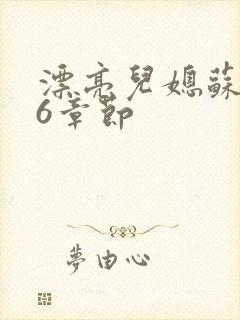 漂亮兒媳蘇
6章節
夢由心